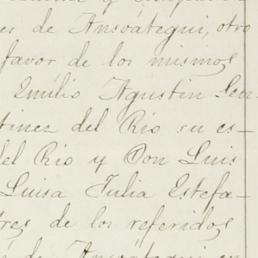 es de Ansoátegui, otro
favor de los mismos
Emilio Agustin Len
tinez del Rio su es-
del Rio y Don Luis
Luisa Julia Estefa-
tres de los referidos
de Ansoátegui en